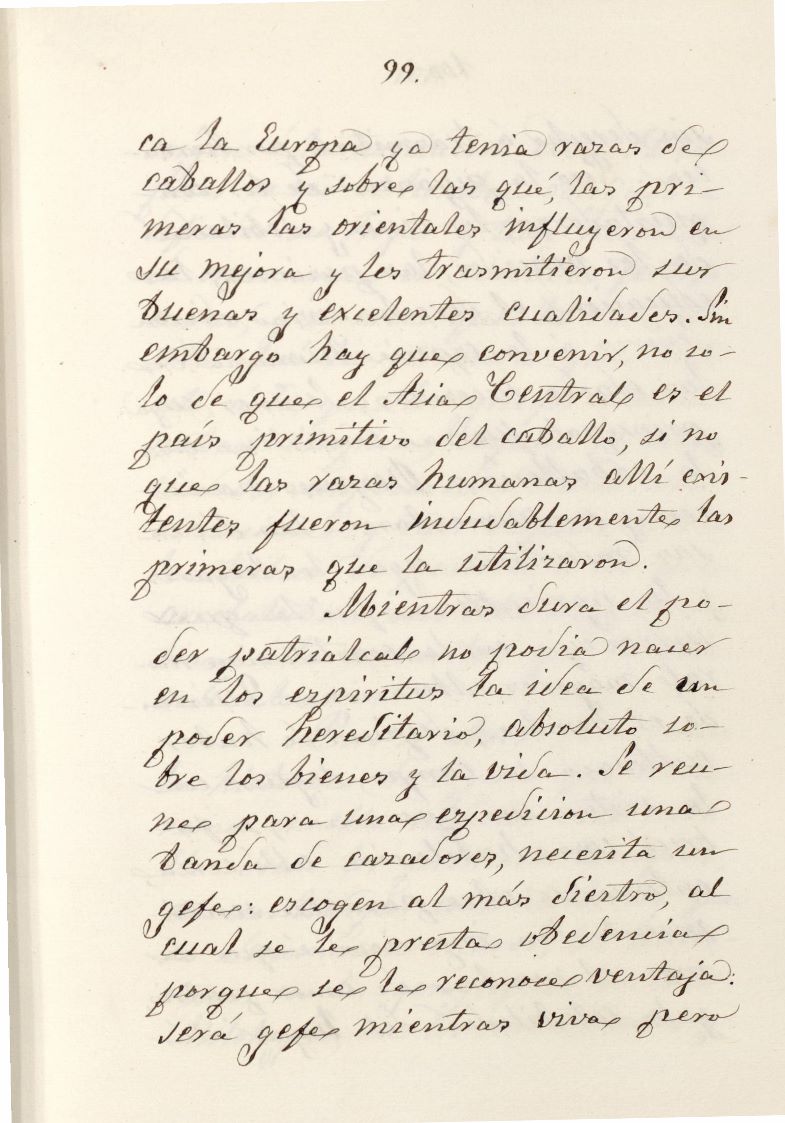 99.
ca la Europa ya tenia razas de
caballos y sobre las qué, las pri-
meras las orientales influyeron en
su mejora y les trasmitieron sus
buenas y excelentes cualidades. Sin
embargo hay que convenir, no so-
lo de que el Asia Central es el
país primitivo del caballo, si no
que las razas humanas allí exis-
tentes fueron indudablemente las
primeras que la utilizaron.
Mientras dura el po-
der patrialcal no podia nacer
en los espiritus la idea de un
poder hereditario, absoluto so-
bre los bienes y la vida. Se reu-
ne para una espedicion una
banda de cazadores, necesita un
gefe: escogen al más diestro, al
cual se le presta obedencia
porque se le reconoce ventaja:
será gefe mientras viva pero